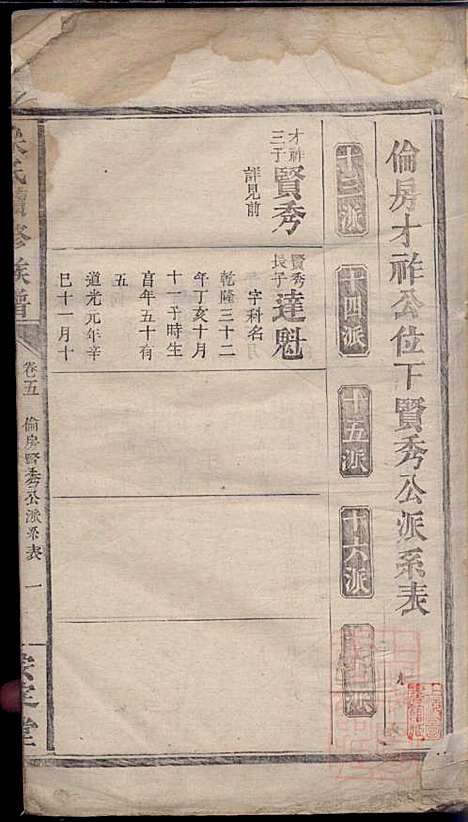 倫房才祚公位下賢秀公派系表
十三派
十四派
十五派
十六派
才祚
三子
賢秀
詳見前
賢秀
長子
達魁
字科名
乾隆三十二
年丁亥十月
十一子時生
享年五十有
五
道光元年辛
巳十一月十
氏續修族譜
卷五
倫房賢秀公派系表
一
堂